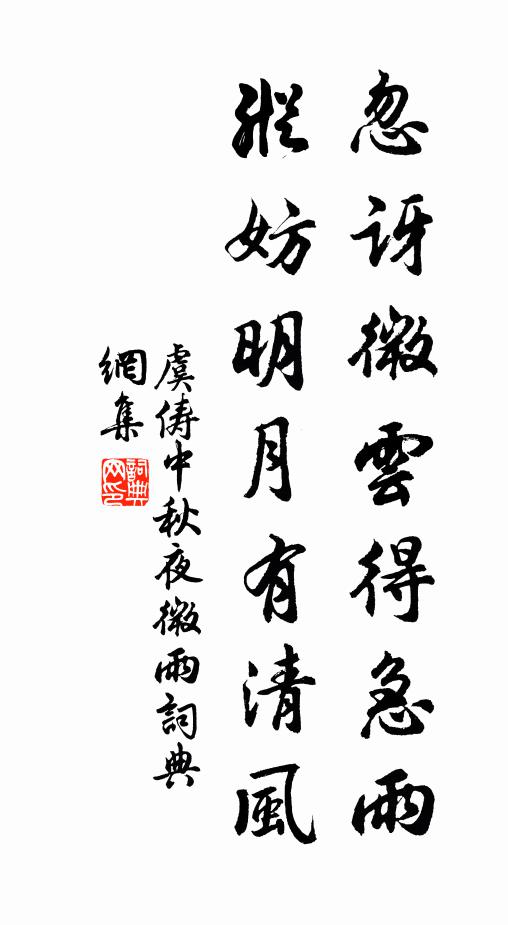 忽讶微雲得急雨
縱妨明月有清風
虞儔中秋夜微雨詞典
網集
詞典
网印